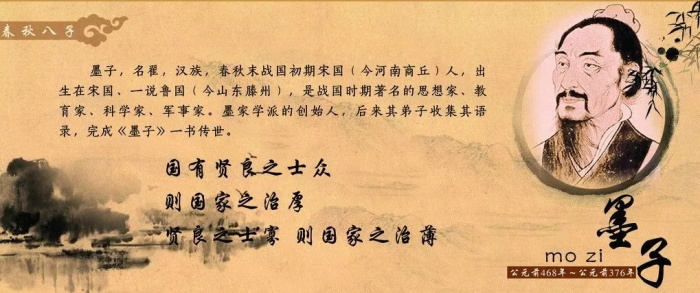 春秋八子
墨子，名翟，汉族，春秋末战国初期宋国（今河南商丘）人，出
生在宋国、一说鲁国（今山东滕州），是战国时期著名的思想家、教
育家、科学家、军事家。墨家学派的创始人，后来其弟子收集其语
录，完成《墨子》一书传世。
国有贤良之士众
则国家之治厚
贤良之士寡 则国家之治薄
墨子
mo zi
公元前468年～公元前376年